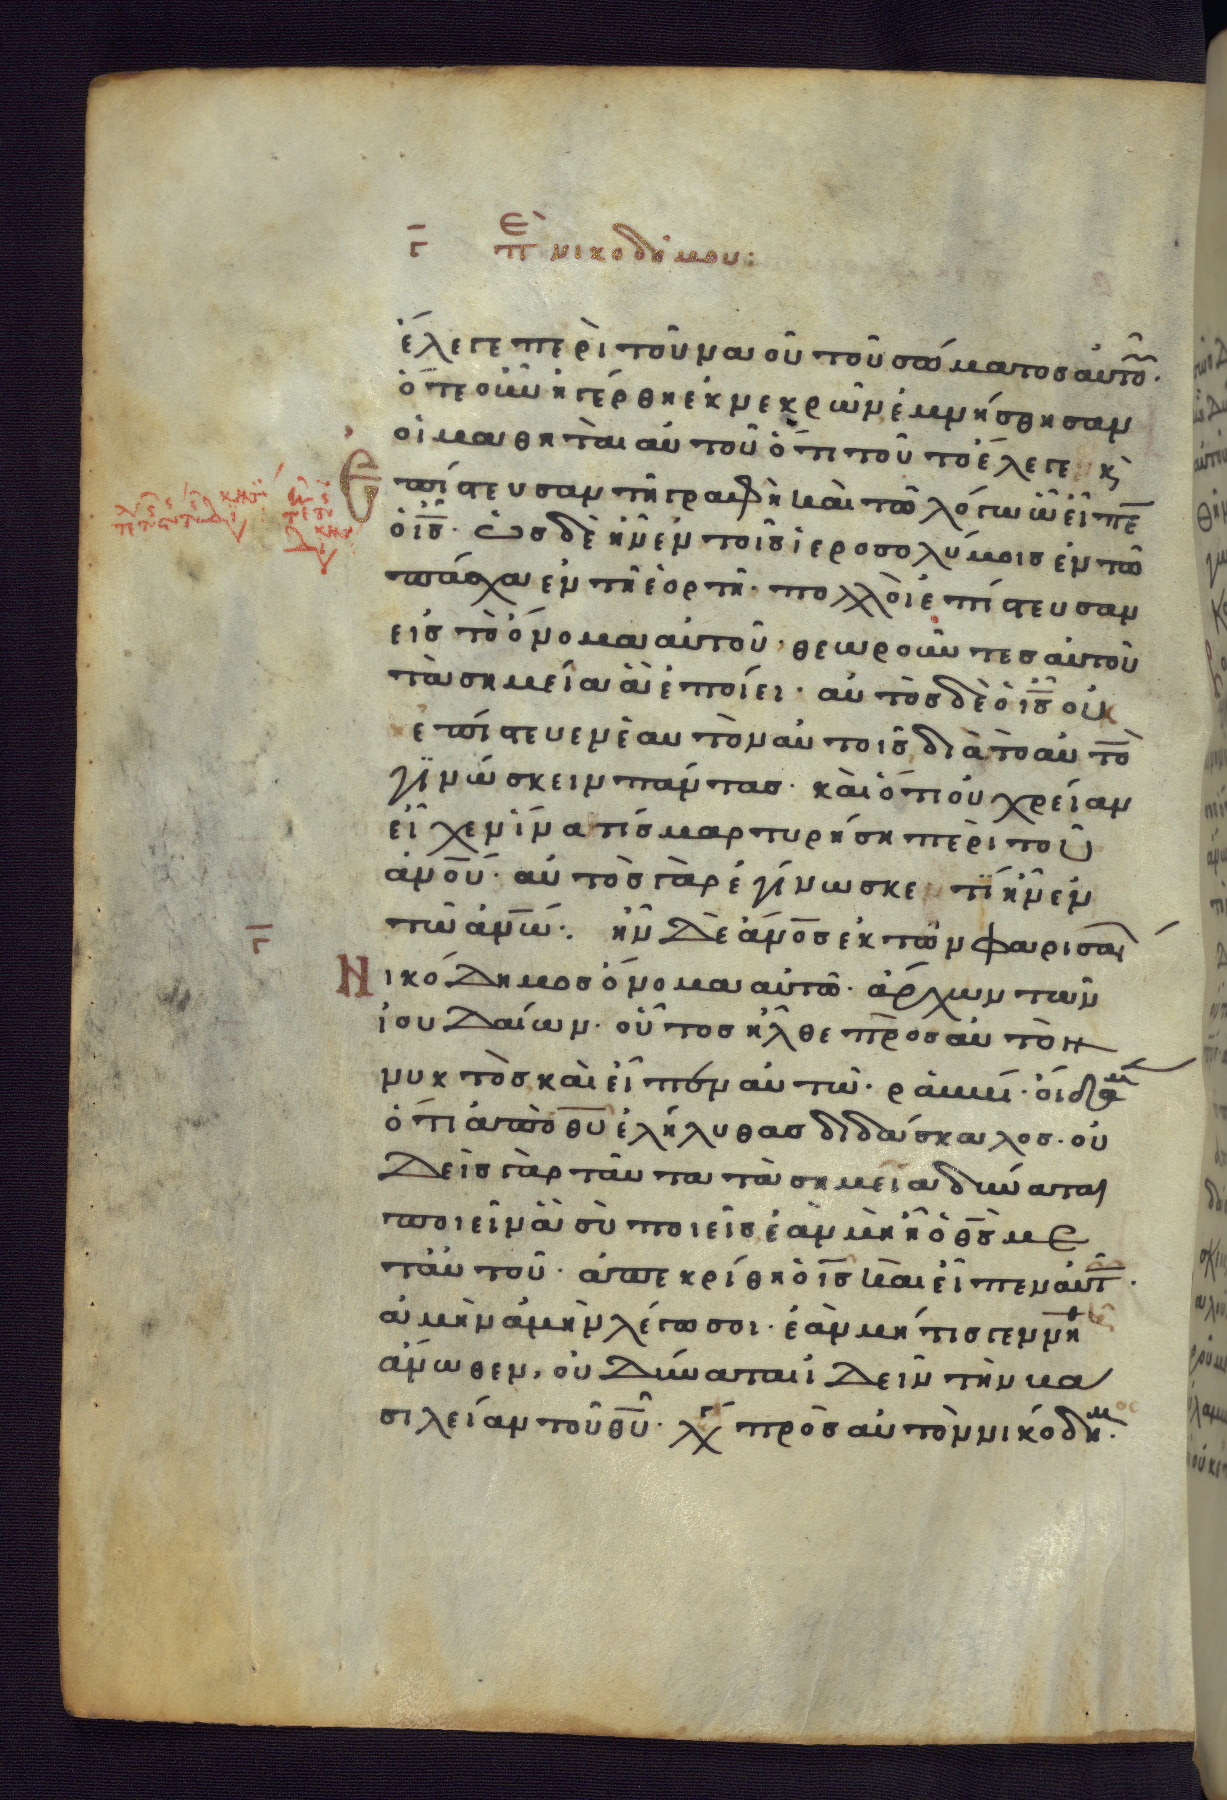 γ̅ πὲ νικοδήμου:
ἔλεγε περὶ τοῦ ναοῦ τοῦ σώματος αὐτοῦ·
ὅτε οὖν ἠγέρθη ἐκ νεκρῶν ἐμνήσθησαν
οἱ μαθηταὶ αὐτοῦ ὅτι τοῦτο ἔλεγε κ̀
ἐπίστευσαν τῆ γραφῆ καὶ τῶ λόγω ὧ εἶπε̅
ὁ ι̅ς̅· ὡς δὲ ἦν ἐν τοῖς ἱεροσολύμοις ἐν τῶ
πάσχα ἐν τῆ ἑορτῆ· πολλοὶ ἐπίστευσαν
εἰς τὸ ὄνομα αὐτοῦ, θεωροῦντες αὐτοῦ
τὰ σημεῖα ἃ ἐποίει· αὐτὸς δὲ ὁ ι̅ς̅ οὐκ
ἐπίστευεν ἑαυτὸν αὐτοῖς διὰ τὸ αὐτὸ̅
γϊνώσκειν πάντας· καὶ ὅτι οὐ χρείαν
εἶχεν ἵνα τίς μαρτυρήση περὶ τοῦ
α̅ν̅ο̅υ̅· αὐτὸς γὰρ ἐγίνωσκε τί ἦν ἐν
τῶ α̅ν̅ω̅:· ἦν δὲ α̅ν̅ο̅ς̅ ἐκ τῶν φαρισαί
γ̅
Νικόδημος ὄνομα αὐτῶ· ἄρχων τῶν
ἰουδαίων· οὗτος ἦλθε πρὸς αὐτὸν
νυκτὸς καὶ εἶπεν αὐτῶ· ῥαββί· οἴδαμ
ὅτι ἀπὸ θ̅υ̅ ἐλήλυθας διδάσκαλος· οὐ
δεὶς γὰρ ταῦτα τὰ σημεῖα δύναται
ποιεῖν ἃ σὺ ποιεῖς ἐὰν μὴ ἦ ὁ θ̅ς̅ με
τ' αὐτοῦ· ἀπεκρίθη ὁ ι̅ς̅ καὶ εἶπεν αὐτ·
ἀμὴν ἀμὴν λέγω σοι· ἐὰν μή τις γεννη
ἄνωθεν, οὐ δύναται ἰδεῖν τὴν βα
σιλείαν τοῦ θ̅υ̅· λγ πρὸς αὐτὸν νικόδημ·